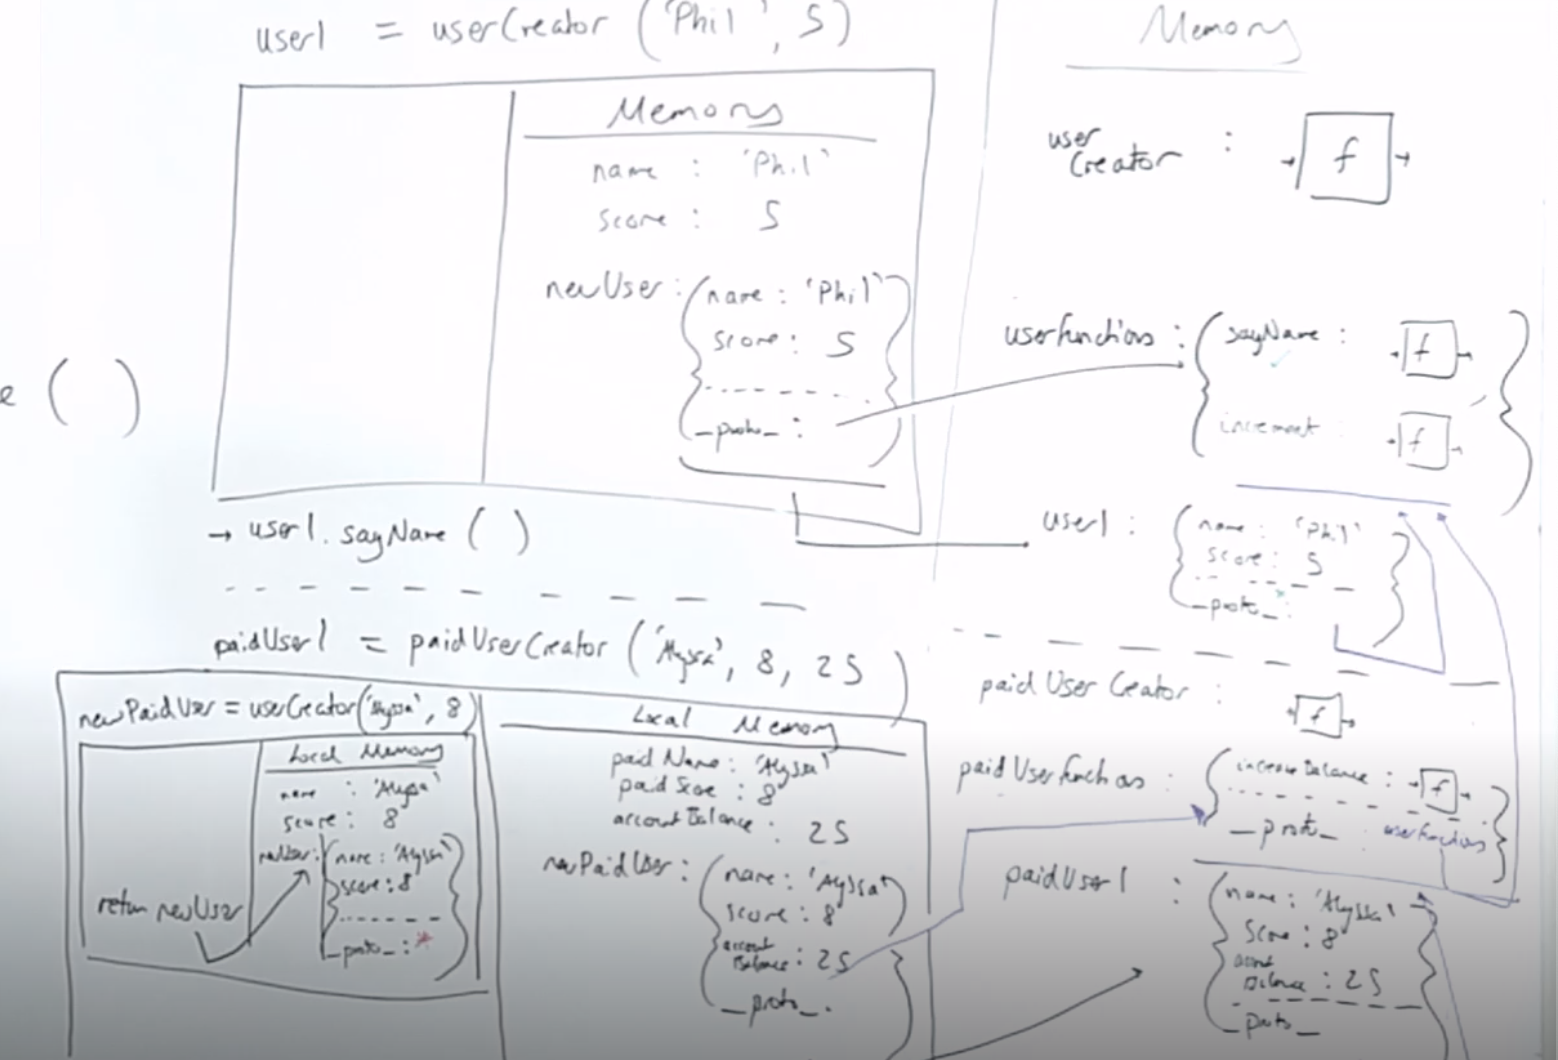 user1 = userCreator ('Phil', 5)
Memory
name : 'Phil'
score : 5
newUser : { name : 'Phil'
score : 5
__proto__ :
e ( )
→ user1. sayName ( )
paidUser1 = paidUserCreator ('Alyssa', 8, 25)
newPaidUser = userCreator('Alyssa', 8)
Local Memory
name : 'Alyssa'
score : 8
newUser : { name : 'Alyssa'
score : 8
return newUser
__proto__ : *
Local Memory
paid Name : 'Alyssa'
paid Score : 8
account Balance : 25
newPaidUser : { name : 'Alyssa'
score : 8
account
Balance : 25
__proto__ .
Memory
user
Creator : f
userfunctions : { sayName : f
increment : f }
user1 : { name : 'Phil'
score : 5
__proto__ : }
paid User Creator : f
paid Userfunctions : { increaseBalance : f
__proto__ : userfunctions }
paidUser1 : { name : 'Alyssa'
Score : 8
account
Balance : 25
__proto__